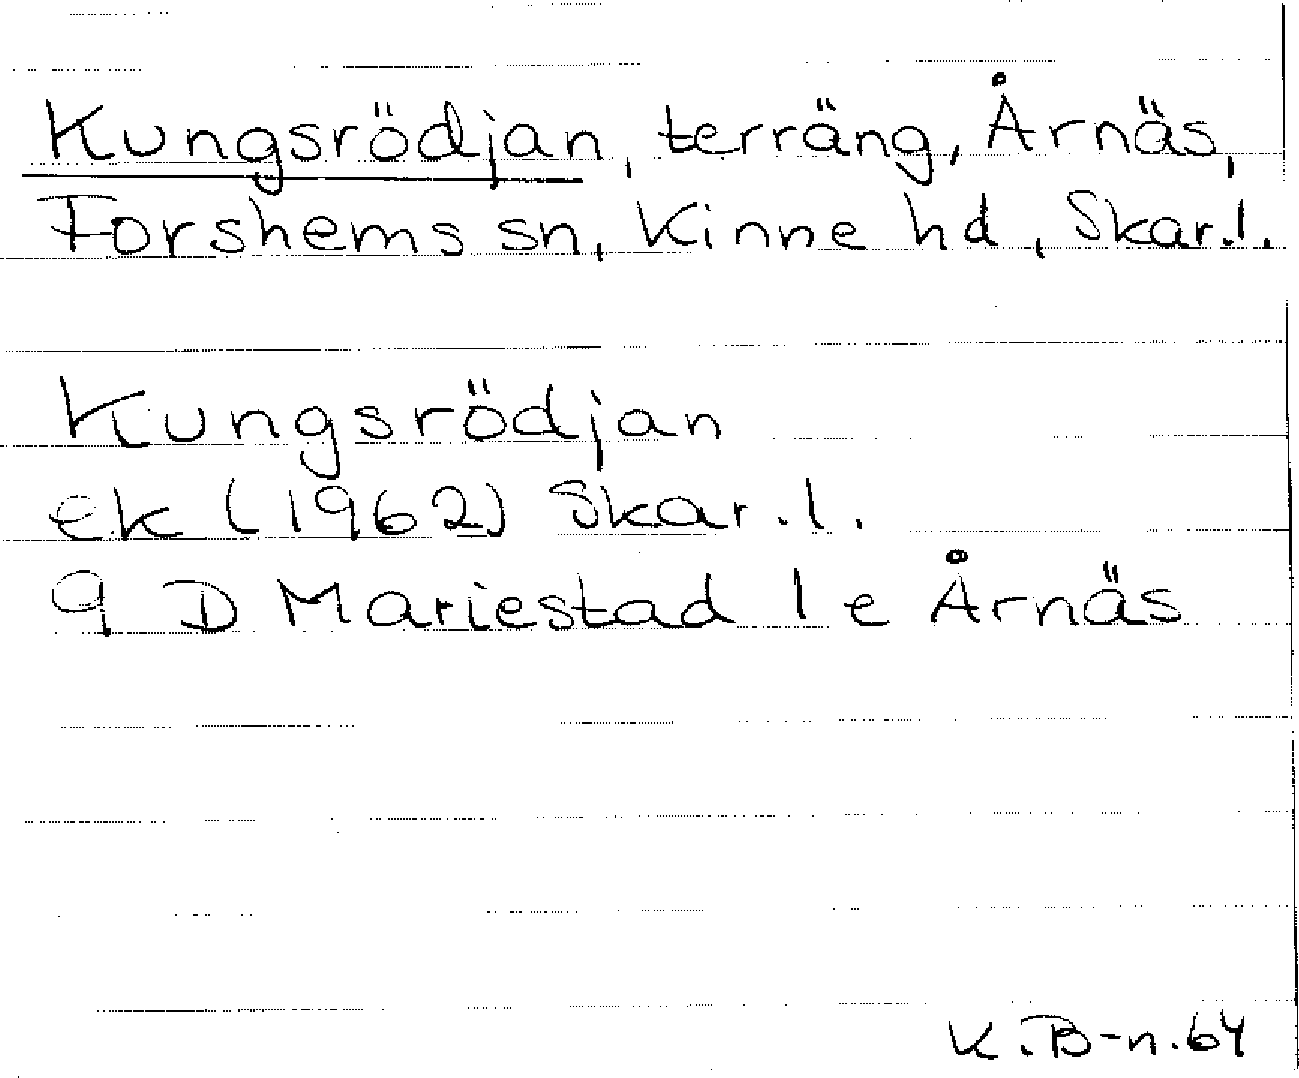 Kungsrödjan, terräng, Årnäs,
Forshems sn, Kinne hd, Skar.l.
Kungsrödjan
ek (1962) Skar.l.
9 D Mariestad 1 e Årnäs
K.B-n.64